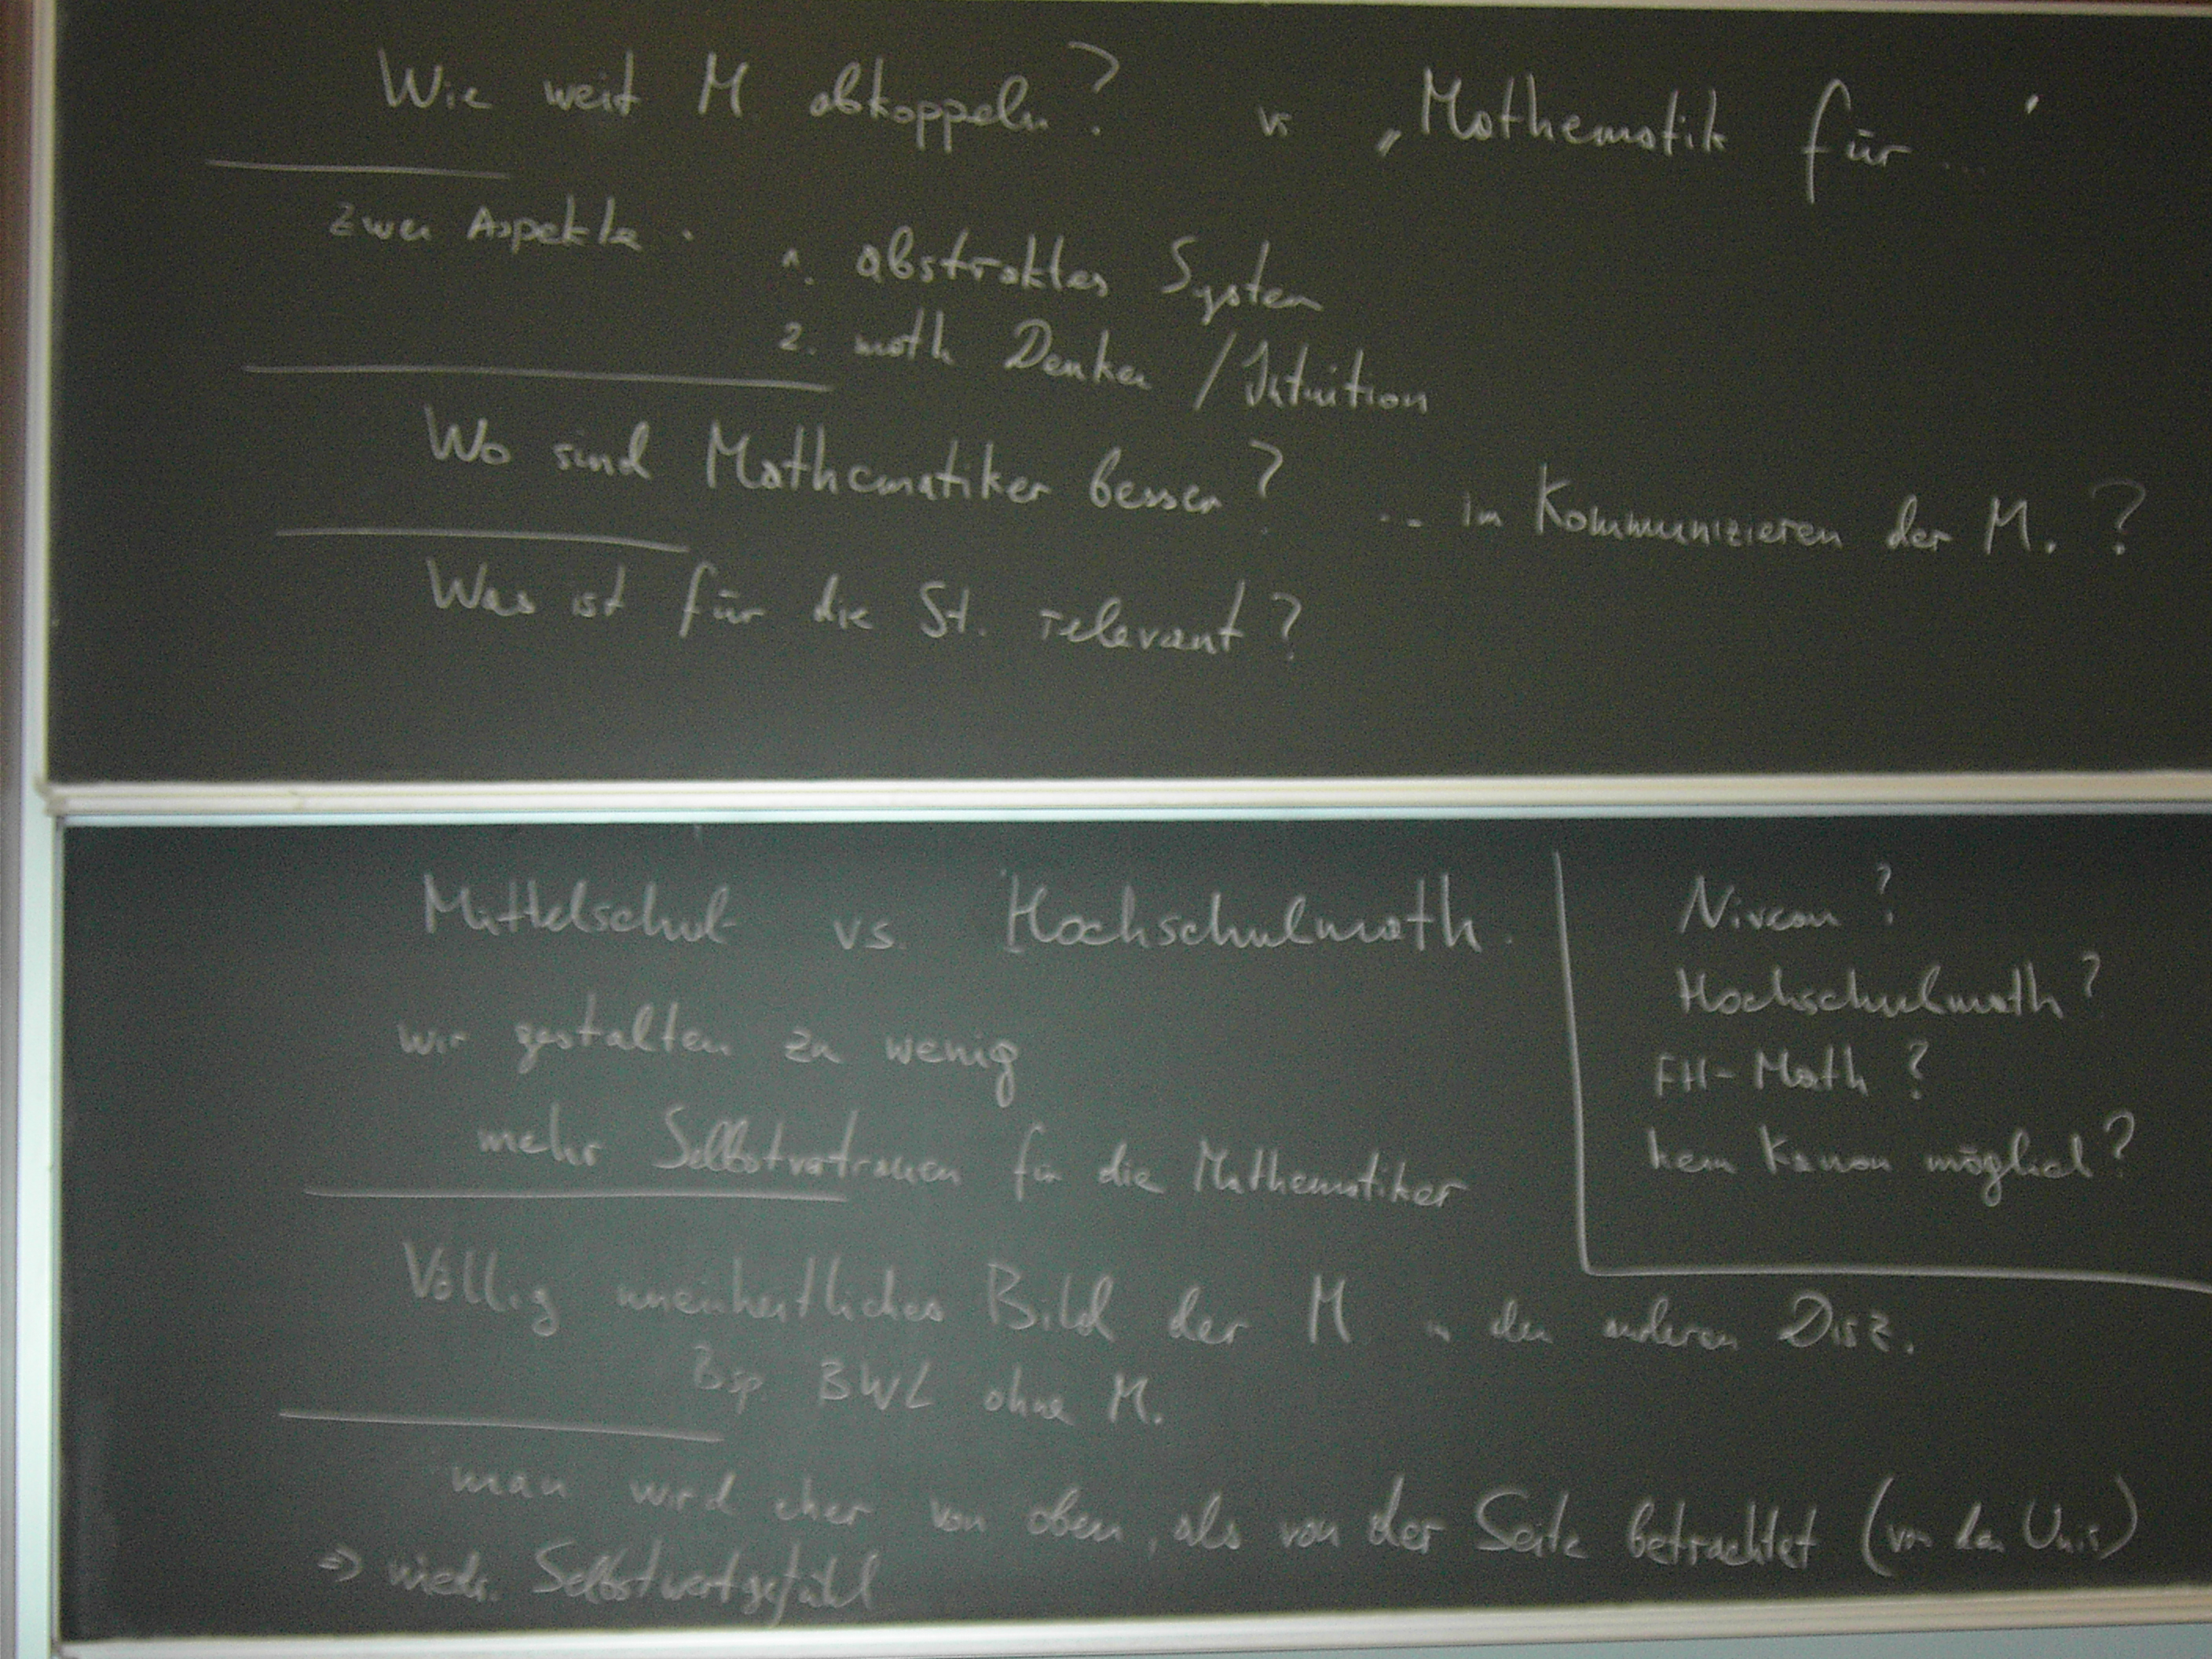 Wie weit M. abkoppeln? vs „Mathematik für ..."
Zwei Aspekte.
1. abstraktes System
2. math Denken / Intuition
Wo sind Mathematiker besser? ... im Kommunizieren der M. ?
Was ist für die St. relevant?
Mittelschul- vs. Hochschulmath.
wir gestalten zu wenig
mehr Selbstvertrauen für die Mathematiker
Niveau ?
Hochschulmath ?
FH-Math ?
kein Kanon möglich ?
Völlig uneinheitliches Bild der M in den anderen Disz.
Bsp. BWL ohne M.
man wird eher von oben, als von der Seite betrachtet (von den Unis)
=> niedr. Selbstwertgefühl